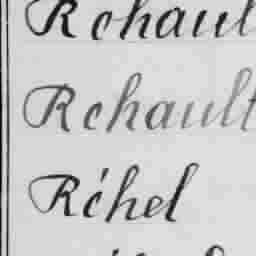 Rchault
Rchault
Réhel